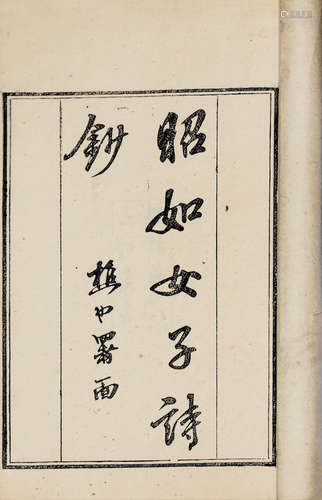 昭如女子詩
鈔
樵也署面